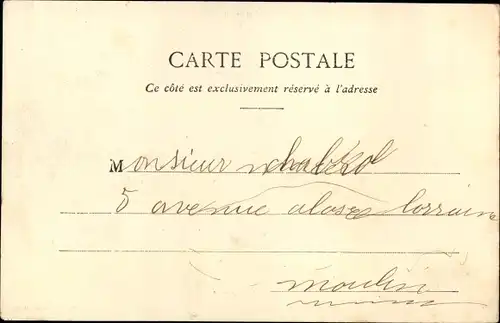 CARTE POSTALE
Ce côté est exclusivement réservé à l'adresse
Monsieur
5 avenue alose lorraine
moulin